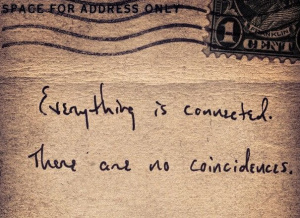 SPACE FOR ADDRESS ONLY
FRANKLIN
1 CENT
Everything is connected.
There are no coincidences.